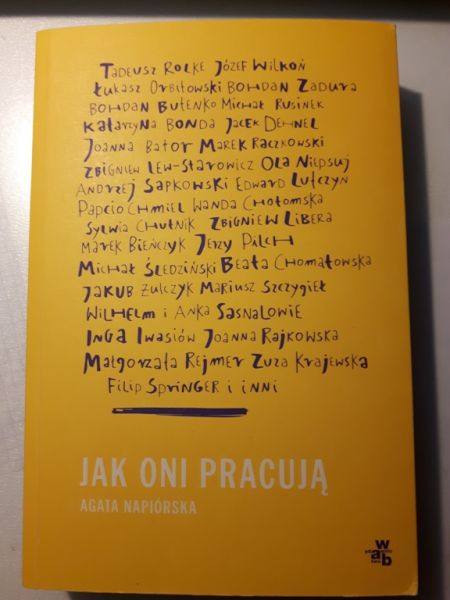 Tadeusz Rolke Józef Wilkoń
Łukasz Orbitowski Bohdan Zadura
Bohdan Butenko Michał Rusinek
Katarzyna Bonda Jacek Dehnel
Joanna Bator Marek Raczkowski
Zbigniew Lew-Starowicz Ola Niepsuj
Andrzej Sapkowski Edward Lutczyn
Papcio Chmiel Wanda Chotomska
Sylwia Chutnik Zbigniew Libera
Marek Bieńczyk Jerzy Pilch
Michał Śledziński Beata Chomątowska
Jakub Żulczyk Mariusz Szczygieł
Wilhelm i Anka Sasnalowie
Inga Iwasiów Joanna Rajkowska
Małgorzata Rejmer Zuza Krajewska
Filip Springer i inni
JAK ONI PRACUJĄ
AGATA NAPIÓRSKA
w
a b